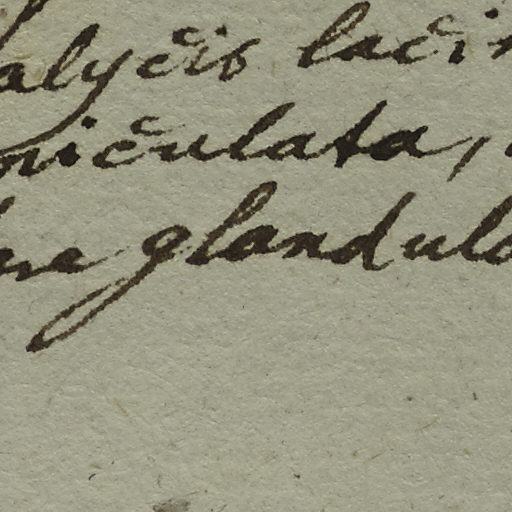 alycis lacin
niculata,
ne glandulo